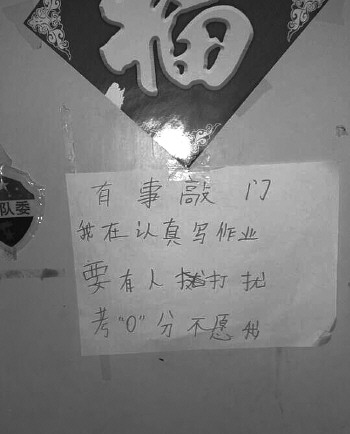 福
队委
有事敲门
我在认真写作业
要有人打扰
考“0”分不愿我